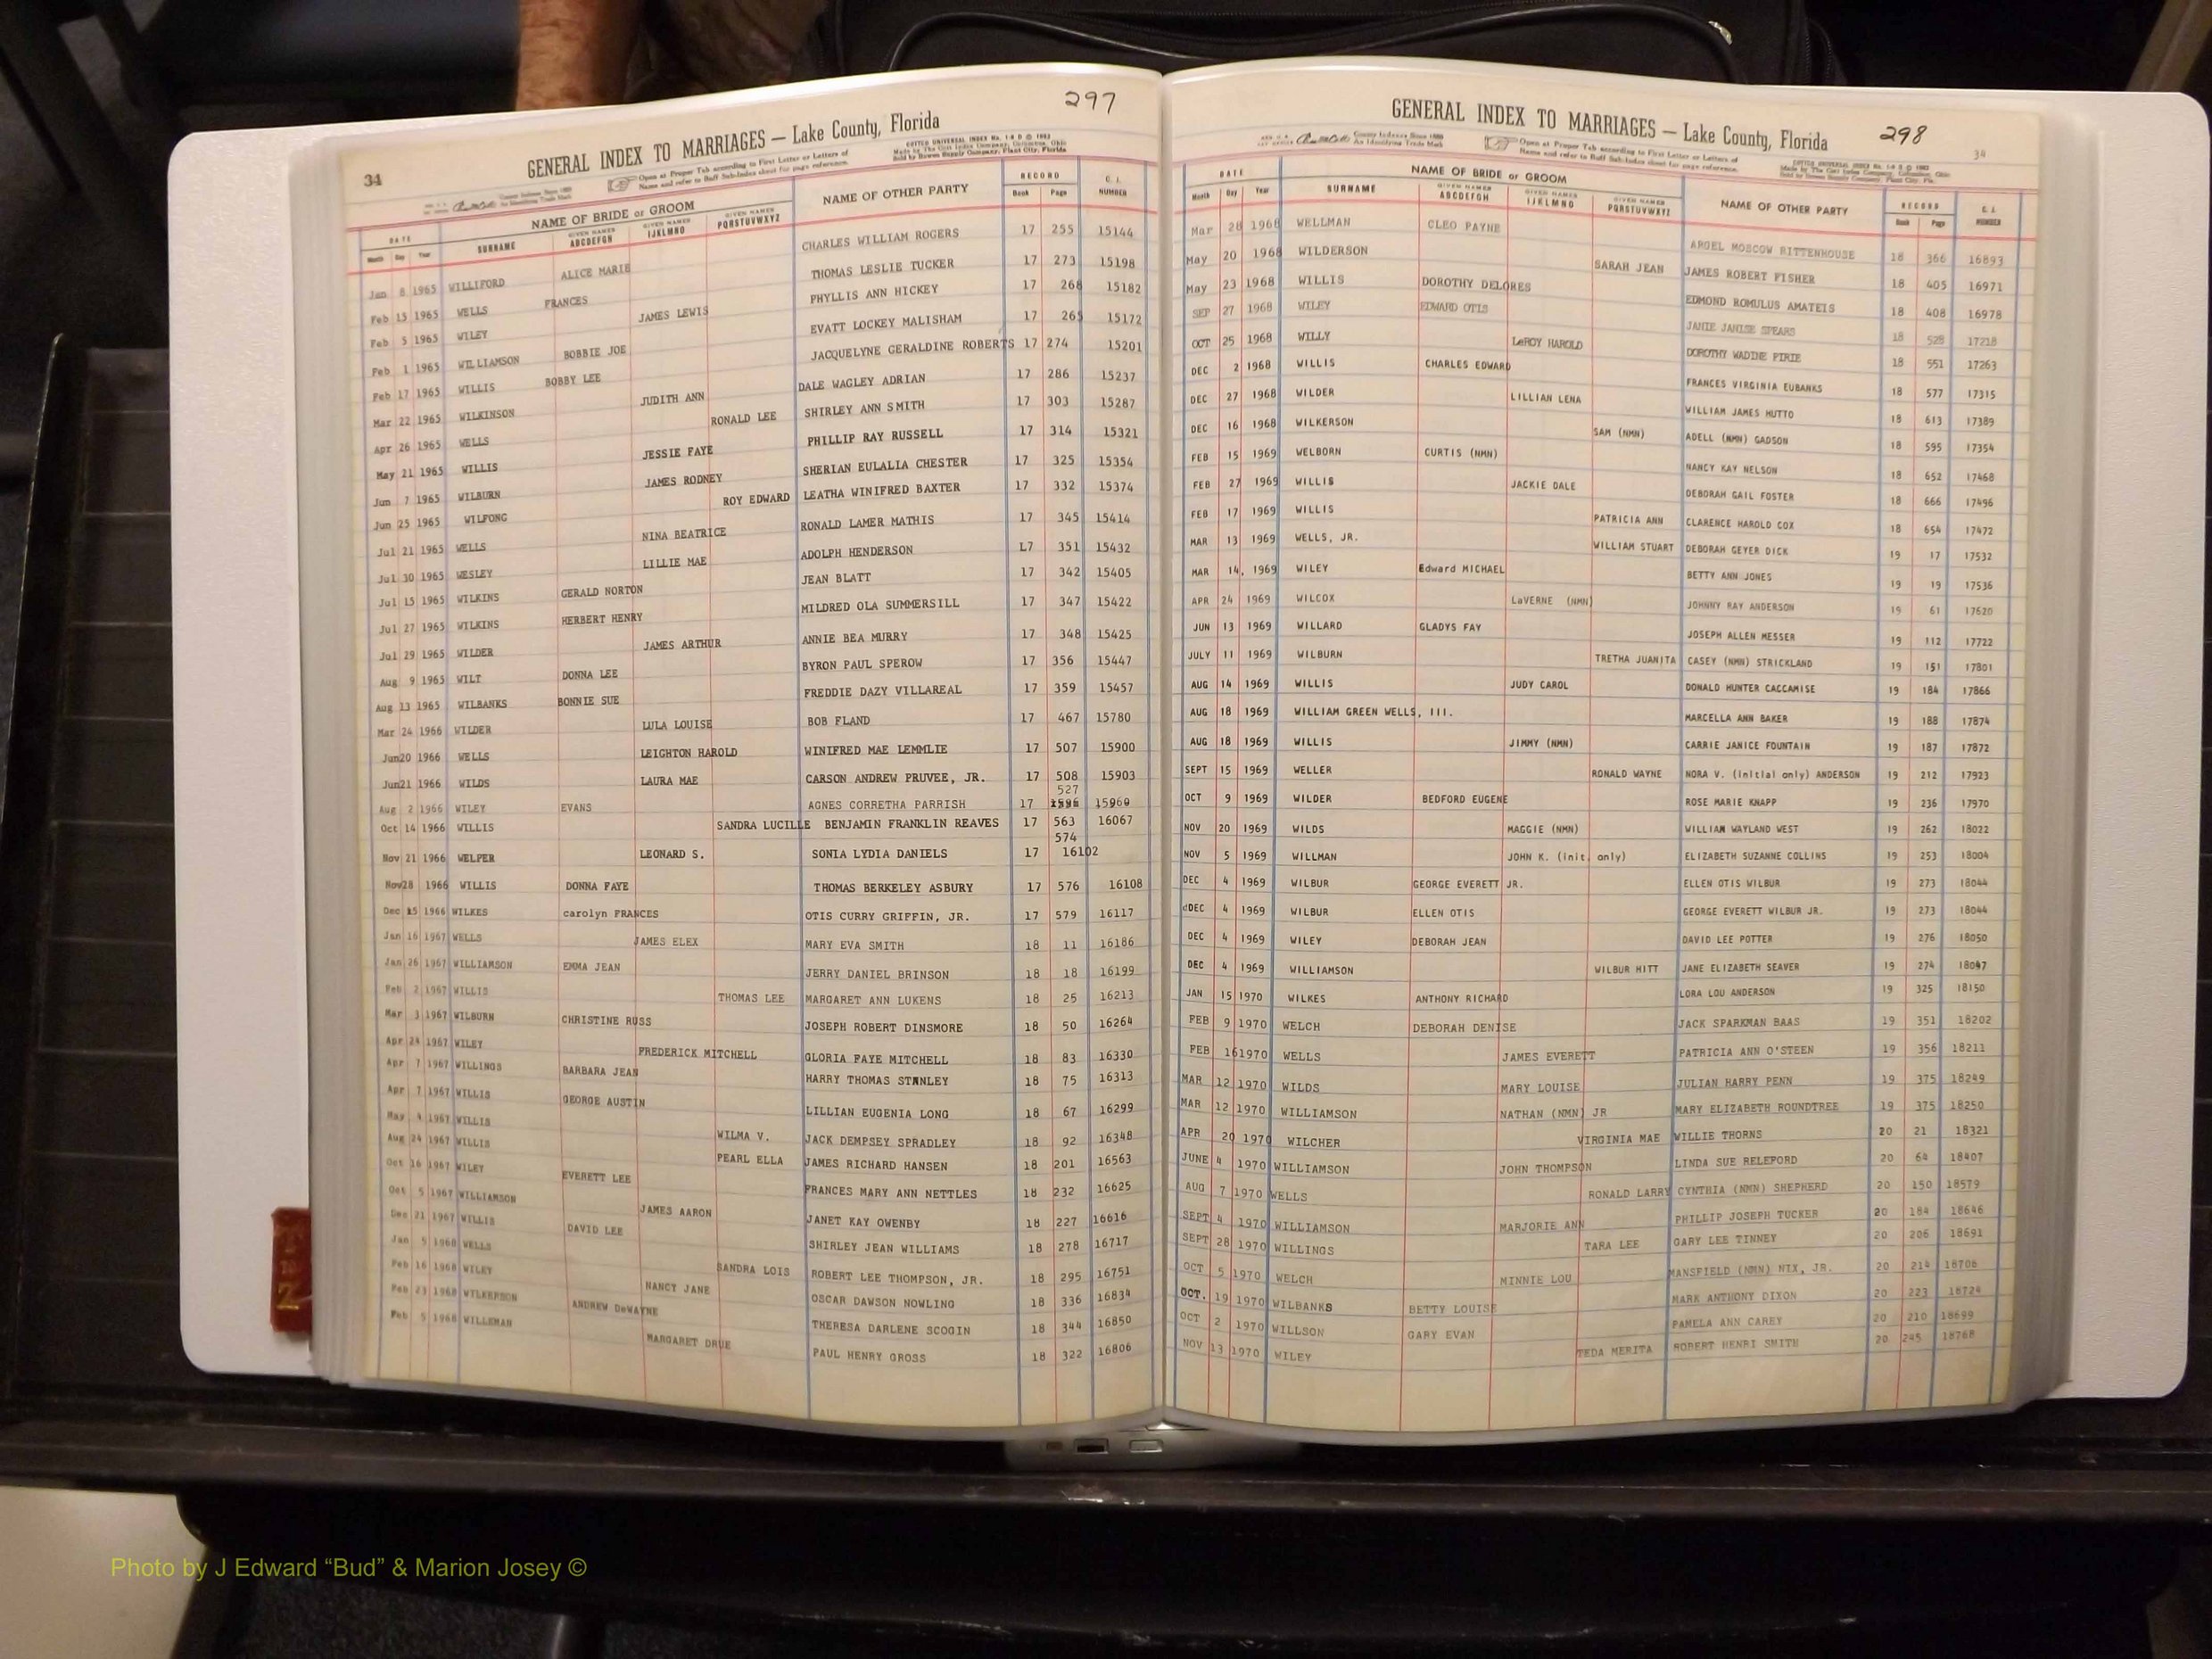 297
34
GENERAL INDEX TO MARRIAGES — Lake County, Florida
Open at Proper Tab according to First Letter or Letters of
Name and refer to Buff Sub-Index sheet for page reference.
NAME OF BRIDE or GROOM NAME OF OTHER PARTY RECORD C. I.
DATE SURNAME GIVEN NAMES ABCDEFGH GIVEN NAMES IJKLMNO GIVEN NAMES PQRSTUVWXYZ Book Page NUMBER
Month Day Year
Jan 8 1965 WILLIFORD ALICE MARIE CHARLES WILLIAM ROGERS 17 255 15144
Feb 15 1965 WELLS FRANCES THOMAS LESLIE TUCKER 17 273 15198
Feb 5 1965 WILEY JAMES LEWIS PHYLLIS ANN HICKEY 17 268 15182
Feb 1 1965 WILLIAMSON BOBBIE JOE EVATT LOCKEY MALISHAM 17 265 15172
Feb 17 1965 WILLIS BOBBY LEE JACQUELYNE GERALDINE ROBERTS 17 274 15201
Mar 22 1965 WILKINSON JUDITH ANN DALE WAGLEY ADRIAN 17 286 15237
Apr 26 1965 WELLS RONALD LEE SHIRLEY ANN SMITH 17 303 15287
May 21 1965 WILLIS JESSIE FAYE PHILLIP RAY RUSSELL 17 314 15321
Jun 7 1965 WILBURN JAMES RODNEY SHERIAN EULALIA CHESTER 17 325 15354
Jun 25 1965 WILFONG ROY EDWARD LEATHA WINIFRED BAXTER 17 332 15374
Jul 21 1965 WELLS NINA BEATRICE RONALD LAMER MATHIS 17 345 15414
Jul 30 1965 WESLEY LILLIE MAE ADOLPH HENDERSON L7 351 15432
Jul 15 1965 WILKINS GERALD NORTON JEAN BLATT 17 342 15405
Jul 27 1965 WILKINS HERBERT HENRY MILDRED OLA SUMMERSILL 17 347 15422
Jul 29 1965 WILDER JAMES ARTHUR ANNIE BEA MURRY 17 348 15425
Aug 9 1965 WILT DONNA LEE BYRON PAUL SPEROW 17 356 15447
Aug 13 1965 WILBANKS BONNIE SUE FREDDIE DAZY VILLAREAL 17 359 15457
Mar 24 1966 WILDER LULA LOUISE BOB FLAND 17 467 15780
Jun20 1966 WELLS LEIGHTON HAROLD WINIFRED MAE LEMMLIE 17 507 15900
Jun21 1966 WILDS LAURA MAE CARSON ANDREW PRUVEE, JR. 17 508 15903
Aug 2 1966 WILEY EVANS AGNES CORRETHA PARRISH 17 527 15960
Oct 14 1966 WILLIS SANDRA LUCILLE BENJAMIN FRANKLIN REAVES 17 563 16067
Nov 21 1966 WELPER LEONARD S. SONIA LYDIA DANIELS 17 574 16102
Nov28 1966 WILLIS DONNA FAYE THOMAS BERKELEY ASBURY 17 576 16108
Dec 15 1966 WILKES carolyn FRANCES OTIS CURRY GRIFFIN, JR. 17 579 16117
Jan 16 1967 WELLS JAMES ELEX MARY EVA SMITH 18 11 16186
Jan 26 1967 WILLIAMSON EMMA JEAN JERRY DANIEL BRINSON 18 18 16199
Feb 2 1967 WILLIS THOMAS LEE MARGARET ANN LUKENS 18 25 16213
Mar 3 1967 WILBURN CHRISTINE RUSS JOSEPH ROBERT DINSMORE 18 50 16264
Apr 24 1967 WILEY FREDERICK MITCHELL GLORIA FAYE MITCHELL 18 83 16330
Apr 7 1967 WILLINGS BARBARA JEAN HARRY THOMAS STANLEY 18 75 16313
Apr 7 1967 WILLIS GEORGE AUSTIN LILLIAN EUGENIA LONG 18 67 16299
May 4 1967 WILLIS WILMA V. JACK DEMPSEY SPRADLEY 18 92 16348
Aug 24 1967 WILLIS PEARL ELLA JAMES RICHARD HANSEN 18 201 16563
Oct 16 1967 WILEY EVERETT LEE FRANCES MARY ANN NETTLES 18 232 16625
Oct 5 1967 WILLIAMSON JAMES AARON JANET KAY OWENBY 18 227 16616
Dec 21 1967 WILLIS DAVID LEE SHIRLEY JEAN WILLIAMS 18 278 16717
Jan 5 1968 WELLS SANDRA LOIS ROBERT LEE THOMPSON, JR. 18 295 16751
Feb 16 1968 WILEY NANCY JANE OSCAR DAWSON NOWLING 18 336 16834
Feb 23 1968 WILKERSON ANDREW DeWAYNE THERESA DARLENE SCOGIN 18 344 16850
Feb 5 1968 WILLEMAN MARGARET DRUE PAUL HENRY GROSS 18 322 16806
298
34
GENERAL INDEX TO MARRIAGES — Lake County, Florida
Open at Proper Tab according to First Letter or Letters of
Name and refer to Buff Sub-Index sheet for page reference.
DATE NAME OF BRIDE or GROOM NAME OF OTHER PARTY RECORD C. I.
Month Day Year SURNAME GIVEN NAMES ABCDEFGH GIVEN NAMES IJKLMNO GIVEN NAMES PQRSTUVWXYZ Book Page NUMBER
Mar 28 1968 WELLMAN CLEO PAYNE ARGEL MOSCOW RITTENHOUSE 18 366 16893
May 20 1968 WILDERSON SARAH JEAN JAMES ROBERT FISHER 18 405 16971
May 23 1968 WILLIS DOROTHY DELORES EDMOND ROMULUS AMATEIS 18 408 16978
SEP 27 1968 WILEY EDWARD OTIS JANIE JANISE SPEARS 18 528 17218
OCT 25 1968 WILLY LeROY HAROLD DOROTHY WADINE PIRIE 18 551 17263
DEC 2 1968 WILLIS CHARLES EDWARD FRANCES VIRGINIA EUBANKS 18 577 17315
DEC 27 1968 WILDER LILLIAN LENA WILLIAM JAMES HUTTO 18 613 17389
DEC 16 1968 WILKERSON SAM (NMN) ADELL (NMN) GADSON 18 595 17354
FEB 15 1969 WELBORN CURTIS (NMN) NANCY KAY NELSON 18 652 17468
FEB 27 1969 WILLIS JACKIE DALE DEBORAH GAIL FOSTER 18 666 17496
FEB 17 1969 WILLIS PATRICIA ANN CLARENCE HAROLD COX 18 654 17472
MAR 13 1969 WELLS, JR. WILLIAM STUART DEBORAH GEYER DICK 19 17 17532
MAR 14, 1969 WILEY Edward MICHAEL BETTY ANN JONES 19 19 17536
APR 24 1969 WILCOX LaVERNE (NMN) JOHNNY RAY ANDERSON 19 61 17620
JUN 13 1969 WILLARD GLADYS FAY JOSEPH ALLEN MESSER 19 112 17722
JULY 11 1969 WILBURN TRETHA JUANITA CASEY (NMN) STRICKLAND 19 151 17801
AUG 14 1969 WILLIS JUDY CAROL DONALD HUNTER CACCAMISE 19 184 17866
AUG 18 1969 WILLIAM GREEN WELLS, III. MARCELLA ANN BAKER 19 188 17874
AUG 18 1969 WILLIS JIMMY (NMN) CARRIE JANICE FOUNTAIN 19 187 17872
SEPT 15 1969 WELLER RONALD WAYNE NORA V. (initial only) ANDERSON 19 212 17923
OCT 9 1969 WILDER BEDFORD EUGENE ROSE MARIE KNAPP 19 236 17970
NOV 20 1969 WILDS MAGGIE (NMN) WILLIAM WAYLAND WEST 19 262 18022
NOV 5 1969 WILLMAN JOHN K. (init. only) ELIZABETH SUZANNE COLLINS 19 253 18004
DEC 4 1969 WILBUR GEORGE EVERETT JR. ELLEN OTIS WILBUR 19 273 18044
dDEC 4 1969 WILBUR ELLEN OTIS GEORGE EVERETT WILBUR JR. 19 273 18044
DEC 4 1969 WILEY DEBORAH JEAN DAVID LEE POTTER 19 276 18050
DEC 4 1969 WILLIAMSON WILBUR HITT JANE ELIZABETH SEAVER 19 274 18047
JAN 15 1970 WILKES ANTHONY RICHARD LORA LOU ANDERSON 19 325 18150
FEB 9 1970 WELCH DEBORAH DENISE JACK SPARKMAN BAAS 19 351 18202
FEB 16 1970 WELLS JAMES EVERETT PATRICIA ANN O'STEEN 19 356 18211
MAR 12 1970 WILDS MARY LOUISE JULIAN HARRY PENN 19 375 18249
MAR 12 1970 WILLIAMSON NATHAN (NMN) JR MARY ELIZABETH ROUNDTREE 19 375 18250
APR 20 1970 WILCHER VIRGINIA MAE WILLIE THORNS 20 21 18321
JUNE 4 1970 WILLIAMSON JOHN THOMPSON LINDA SUE RELEFORD 20 64 18407
AUG 7 1970 WELLS RONALD LARRY CYNTHIA (NMN) SHEPHERD 20 150 18579
SEPT 4 1970 WILLIAMSON MARJORIE ANN PHILLIP JOSEPH TUCKER 20 184 18646
SEPT 28 1970 WILLINGS TARA LEE GARY LEE TINNEY 20 206 18691
OCT 5 1970 WELCH MINNIE LOU MANSFIELD (NMN) NIX, JR. 20 214 18706
OCT. 19 1970 WILBANKS BETTY LOUISE MARK ANTHONY DIXON 20 223 18724
OCT 2 1970 WILLSON GARY EVAN PAMELA ANN CAREY 20 210 18699
NOV 13 1970 WILEY TEDA MERITA ROBERT HENRI SMITH 20 245 18768
Photo by J Edward “Bud” & Marion Josey ©